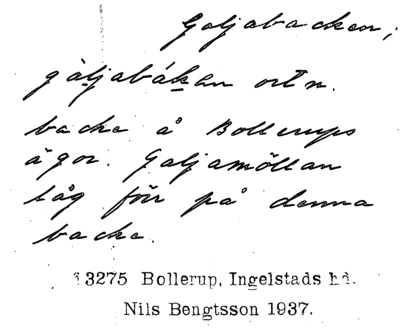 Galjabacken;
gàljabákan ortn.
backe å Bollerups
ägor. Galjamöllan
låg förr på denna
backe.
13275 Bollerup, Ingelstads hd.
Nils Bengtsson 1937.